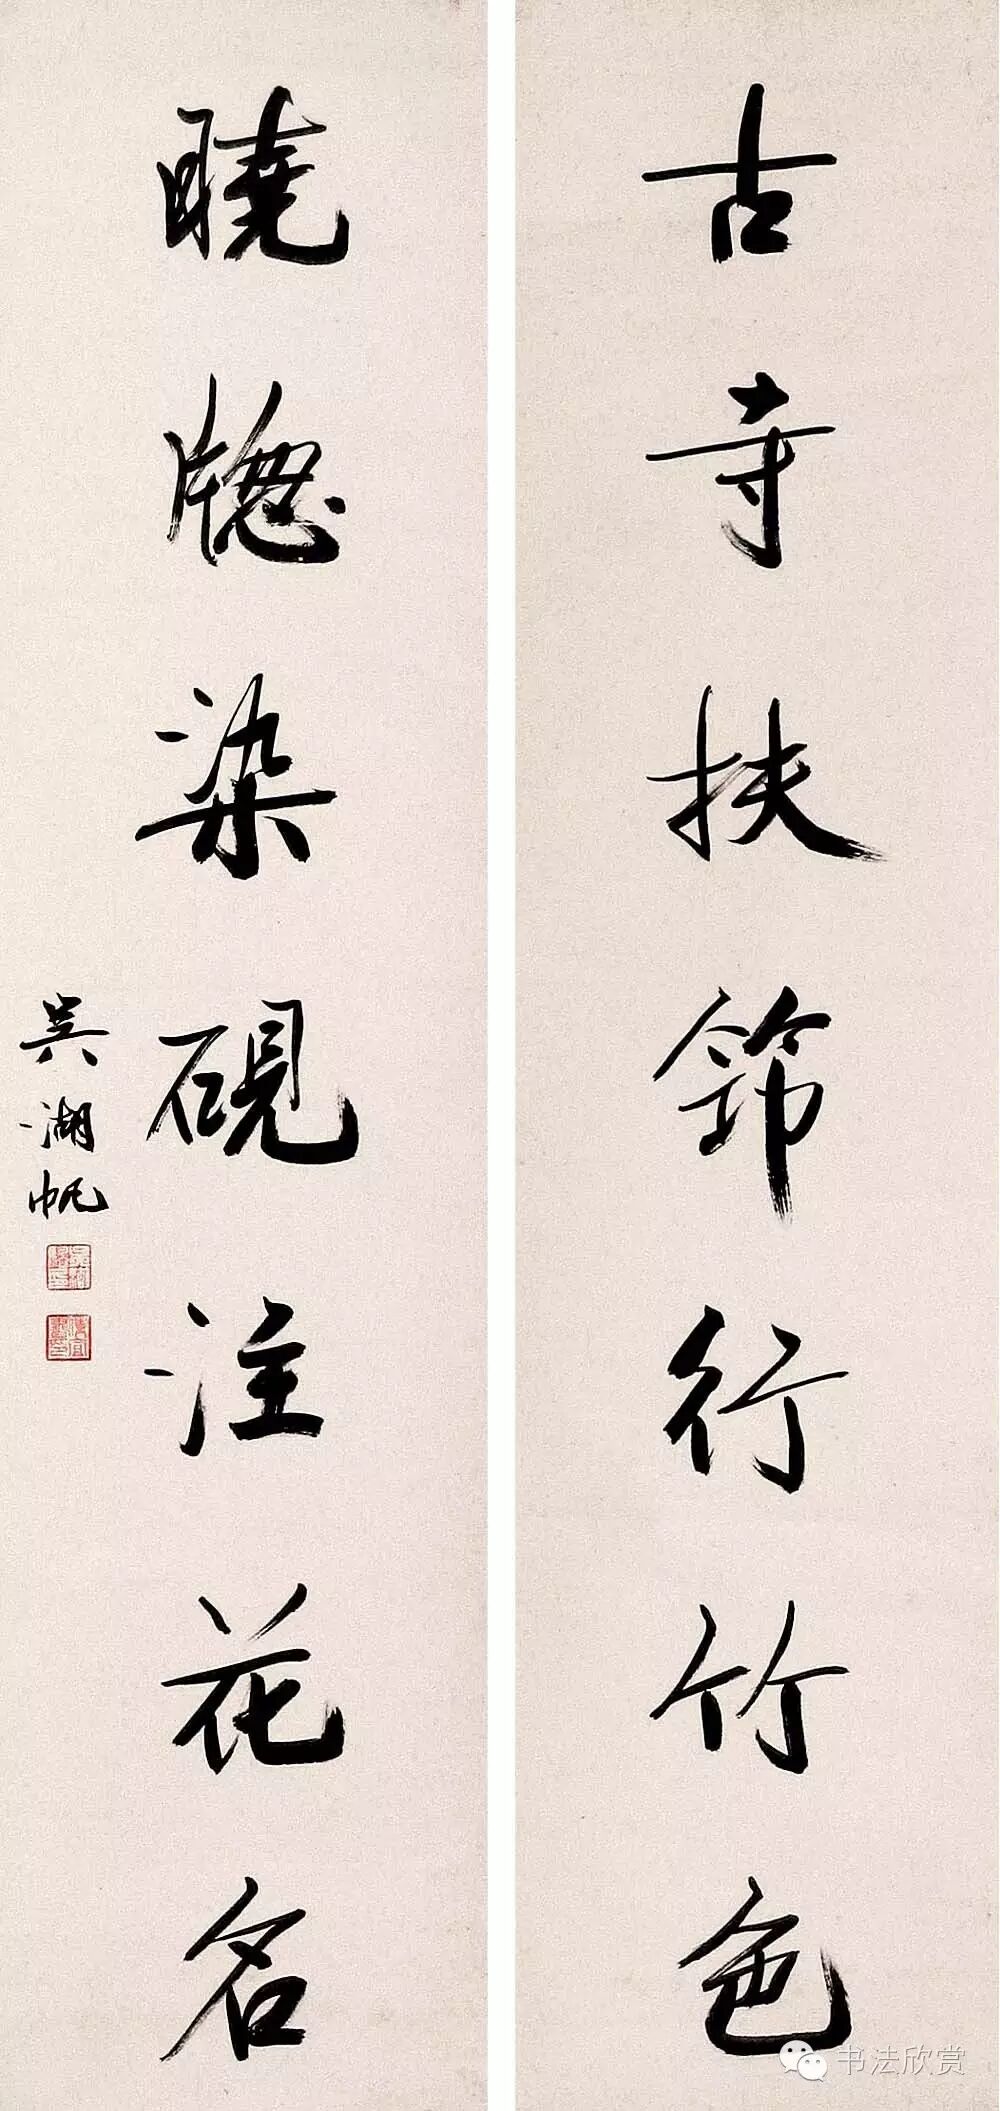 古寺扶筇行竹色
曉牕染硯注花名
吳湖帆
书法欣赏